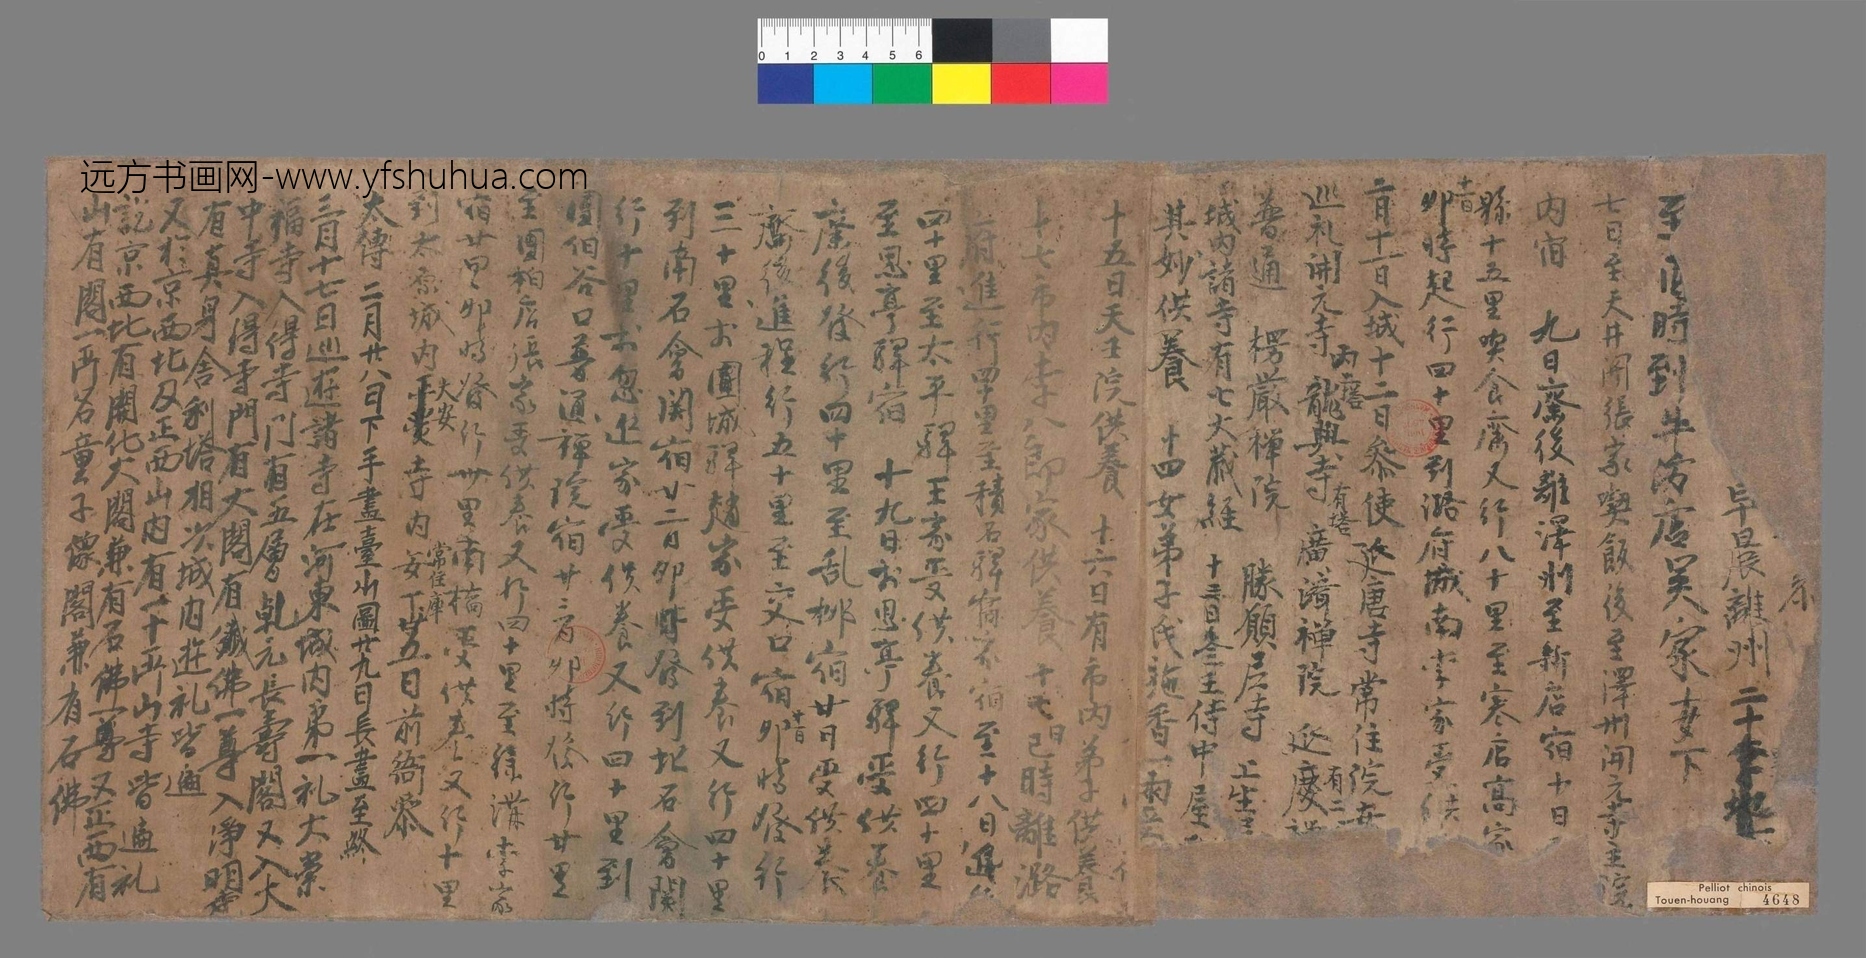 远方书画网-www.yfshuhua.com
0 1 2 3 4 5 6
辰離州二十
時到
家妻下
七日至天井關張家喫飯後至澤州開元寺主院
内宿 九日齋後離澤州至新店宿十日
縣十五里喫食齋又行八十里至寒店高家
卯時起行四十里到潞府城南李家受供
二月十一日入城十二日參使延唐寺常住院安
巡礼開元寺 龍興寺 有塔 廣濟禪院 延慶
普通 楞嚴禪院 勝願尼寺
城内諸寺有七大藏經 十三日參王侍中屋
其妙供養 十四女弟子氏施香一兩
十五日天王院供養 十六日有市内弟子供養
十七市内李八郎家供養 已時離潞
府進行四十里至積石驛宿 至十八日進
四十里至太平驛王家受供養又行四十里
至思亭驛宿 十九日於思亭驛受供養
齋後發行四十里至乱柳宿廿日受供養
齋後進程行五十里至 口宿 卯時發行
三十里於團城驛趙家受供養又行四十里
到南石會關宿廿二日卯時發到北石會關
行十里 家受供養又行四十里到
團伯谷口普通禪院宿廿三日卯時發行廿里
至團栢店張家受供養又行四十里至徐溝李家
宿廿四卯時發行卅里南橋受供養又行十里
到太原城内大安寺内常住庫安下廿五日前衙參
太傅 二月廿八日下手畫臺山圖廿九日長畫至終
三月十七日巡遊諸寺在河東城内第一礼大崇
福寺入得寺門有五層乹元長壽閣又入大
中寺入得寺門有大閣有鐵佛一尊入淨明寺
有真身舍利塔相次城内遊礼皆遍
又於京西北及正西山内有一十所山寺皆遍礼
説京西北有開化大閣兼有石佛一尊又正西有
山有閣一所名童子像閣兼有石佛
Pelliot chinois
Touen-houang 4648